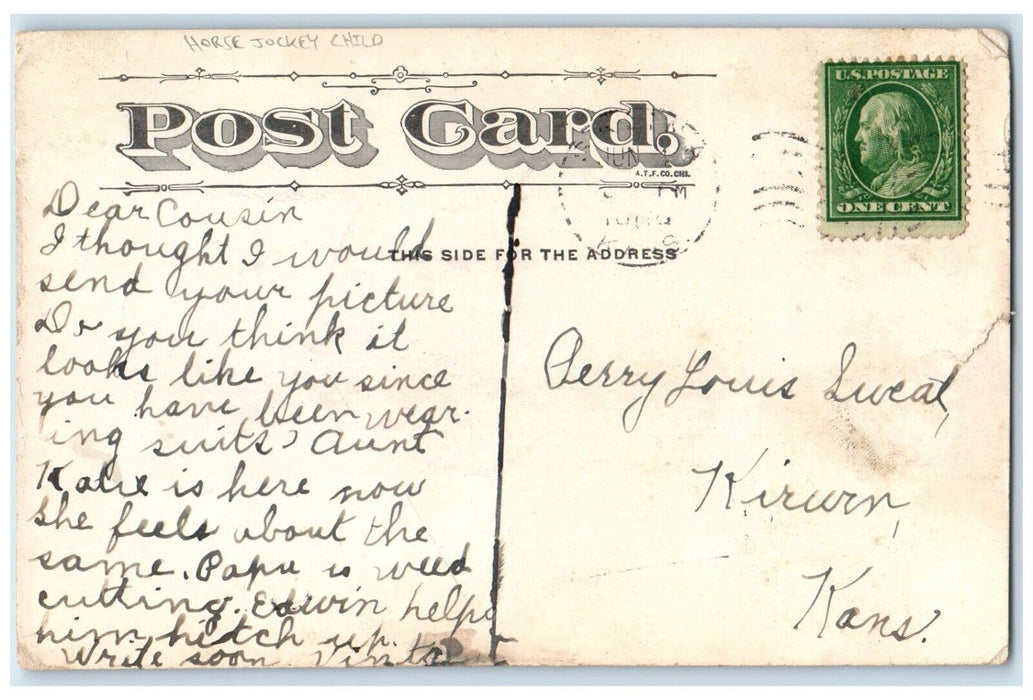 HORSE JOCKEY CHILD
Post Card.
A.T.F. CO. CHI.
U.S. POSTAGE
ONE CENT
JUN
PM
THIS SIDE FOR THE ADDRESS
Dear Cousin
I thought I would
send your picture
Do you think it
looks like you since
you have been wear-
ing suits? Aunt
Katie is here now
she feels about the
same. Papa is weed
cutting. Edwin helps
him hitch up.
Write soon
Perry Louis Sweat,
Kirwin,
Kans.